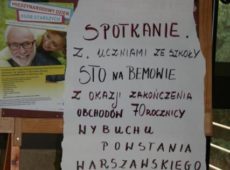 MIĘDZYNARODOWY DZIEŃ
OSÓB STARSZYCH
SPOTKANIE.
Z. UCZNIAMI ZE SZKOŁY
STO NA BEMOWIE
Z OKAZJI ZAKOŃCZENIA
OBCHODÓW 70 ROCZNICY
WYBUCHU
POWSTANIA
WARSZAWSKIEGO